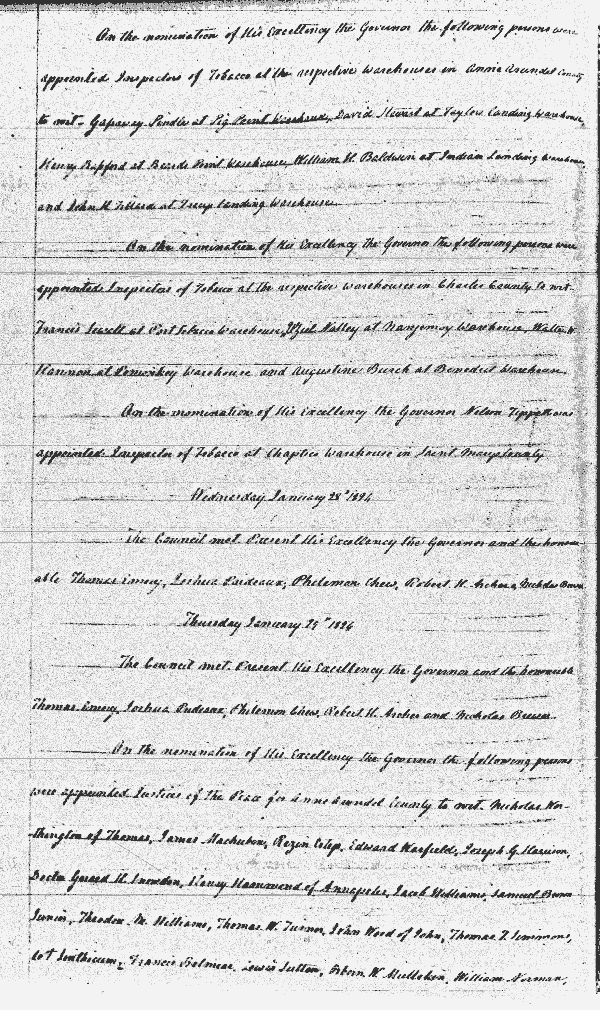 On the nomination of His Excellency the Governor the following persons were
appointed Inspectors of Tobacco at the respective warehouses in Anne Arundel County
to wit. Gassaway Pindle at Pig Point Warehouse, David Stewart at Taylors Landing Warehouse,
Henry at Beards Point Warehouse, William H. Baldwin at Indian Landing Warehouse
and John H. Tillard at Tracys Landing Warehouse.
On the nomination of His Excellency the Governor the following persons were
appointed Inspectors of Tobacco at the respective warehouses in Charles County to wit.
Francis Sewell at Port Tobacco Warehouse, Nalley at Nanjemoy Warehouse, Walter H
Hannon at Pomonkey Warehouse and Augustine Burch at Benedict Warehouse.
On the nomination of His Excellency the Governor Nelson Tippett was
appointed Inspector of Tobacco at Chaptico Warehouse in Saint Marys County
Wednesday January 28th
The Council met. Present His Excellency the Governor and the honour
able Thomas Emory, Joshua Prideaux, Philemon Chew, Robert H. Archer & Nicholas Brewer
Thursday January 29th
The Council met. Present His Excellency the Governor and the honourable
Thomas Emory, Joshua Prideaux, Philemon Chew, Robert H. Archer and Nicholas Brewer.
On the nomination of His Excellency the Governor the following persons
were appointed Justices of the Peace for Anne Arundel County to wit. Nicholas Wor-
thington of Thomas, James Mackubin, Rezin Estep, Edward Warfield, Joseph G. Harrison,
Doctr Gerard H. Snowden, Henry Hammond of Annapolis, Jacob Williams, Samuel Brown
Junior, Theodore M. Williams, Thomas W. Turner, John Wood of John, Thomas T. Simmons,
Lot Linthicum, Francis Belmear, Lewis Sutton, Osborn W. Mullikin, William Norman,